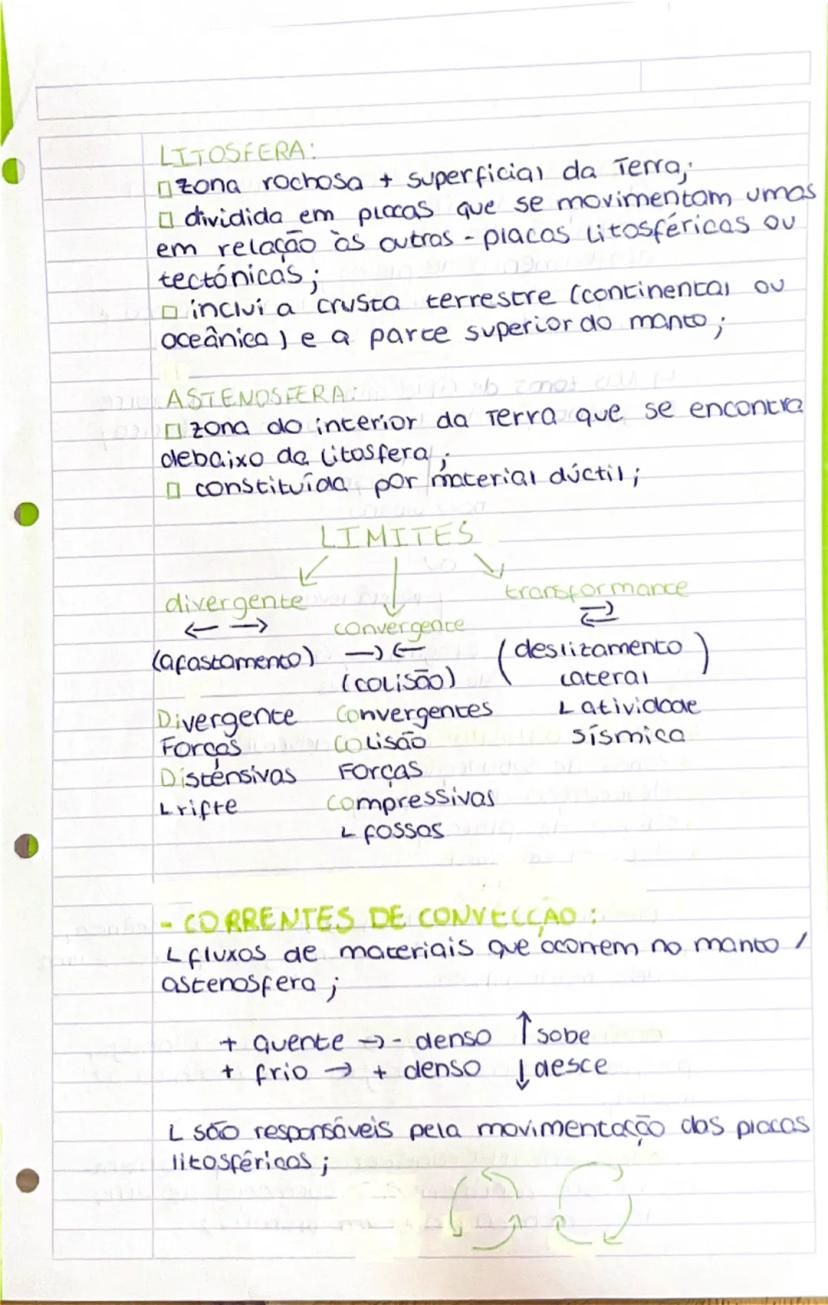 LITOSFERA:
□ zona rochosa + superficial da Terra;
□ dividida em placas que se movimentam umas
em relação às outras - placas litosféricas ou
tectónicas;
□ inclui a crusta terrestre (continental ou
oceânica) e a parte superior do manto;
ASTENOSFERA:
□ zona do interior da Terra que se encontra
debaixo da litosfera;
□ constituída por material dúctil;
LIMITES
↙ ↓ ↘
divergente
← →
(afastamento)
Divergente
Forças
Distensivas
↳ rifte
convergente
→ ←
(colisão)
Convergentes
Colisão
Forças
Compressivas
↳ fossas
transformante
⇄
(deslizamento
lateral)
↳ atividade
sísmica
- CORRENTES DE CONVECÇÃO:
↳ fluxos de materiais que ocorrem no manto /
astenosfera;
+ quente → - denso ↑ sobe
+ frio → + denso ↓ desce
↳ são responsáveis pela movimentação das placas
litosféricas;